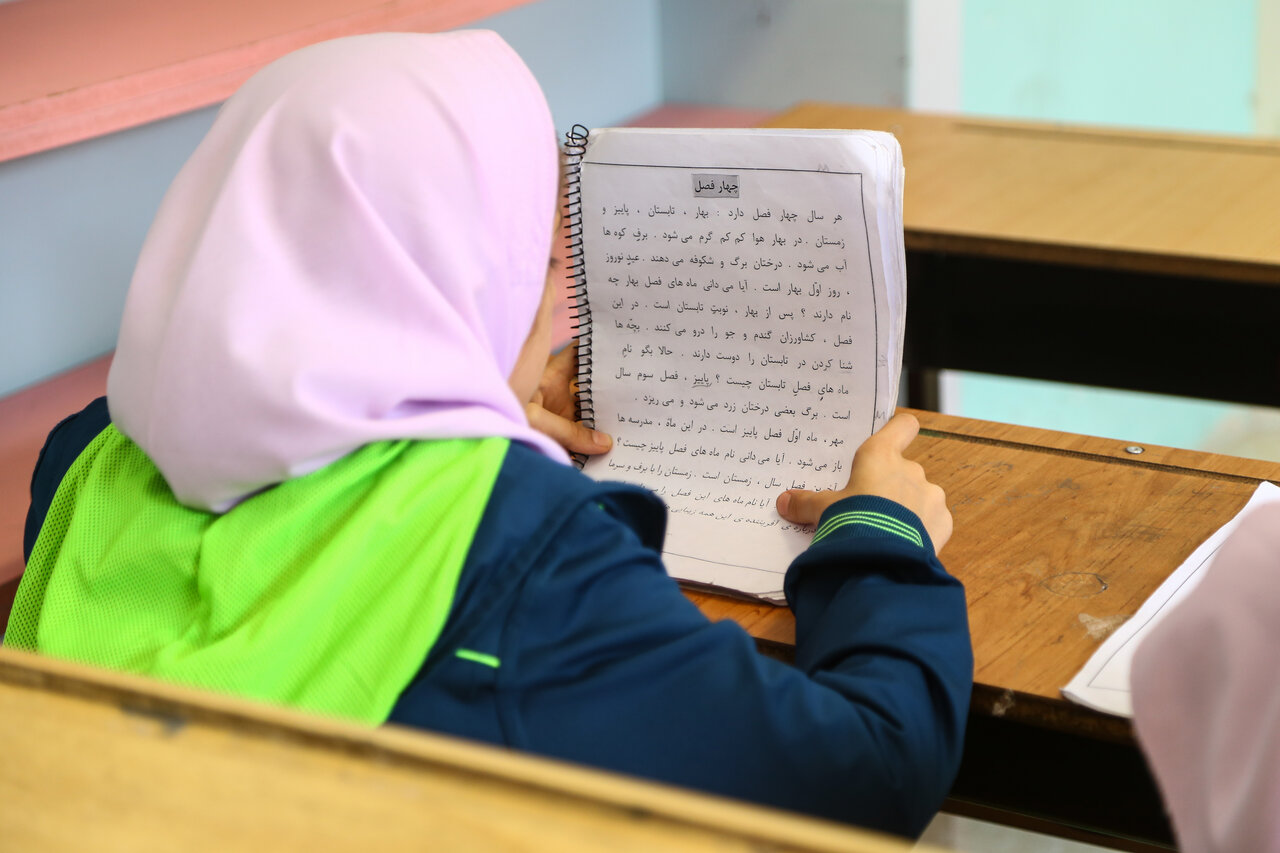 چهار فصل
هر سال چهار فصل دارد : بهار ، تابستان ، پاییز و
زمستان . در بهار هوا کم کم گرم می شود . برفِ کوه ها
آب می شود . درختان برگ و شکوفه می دهند . عیدِ نوروز
، روز اوّل بهار است . آیا می دانی ماه های فصل بهار چه
نام دارند ؟ پس از بهار ، نوبتِ تابستان است . در این
فصل ، کشاورزان گندم و جو را درو می کنند . بچّه ها
شنا کردن در تابستان را دوست دارند . حالا بگو نامِ
ماه هایِ فصلِ تابستان چیست ؟ پاییز ، فصل سوم سال
است . برگ بعضی درختان زرد می شود و می ریزد .
مهر ، ماه اوّل فصل پاییز است . در این ماه ، مدرسه ها
باز می شود . آیا می دانی نام ماه های فصل پاییز چیست ؟
آخرین فصل سال ، زمستان است . زمستان را با برف و سرما
آیا نام ماه های این فصل را
درباره ی آفریننده ی این همه زیبایی